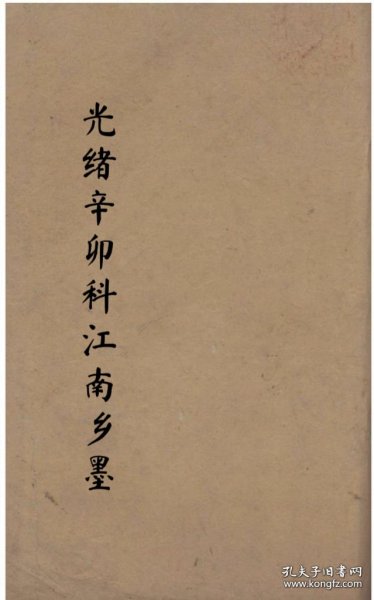 光绪辛卯科江南乡墨
孔夫子旧书网
www.kongfz.com